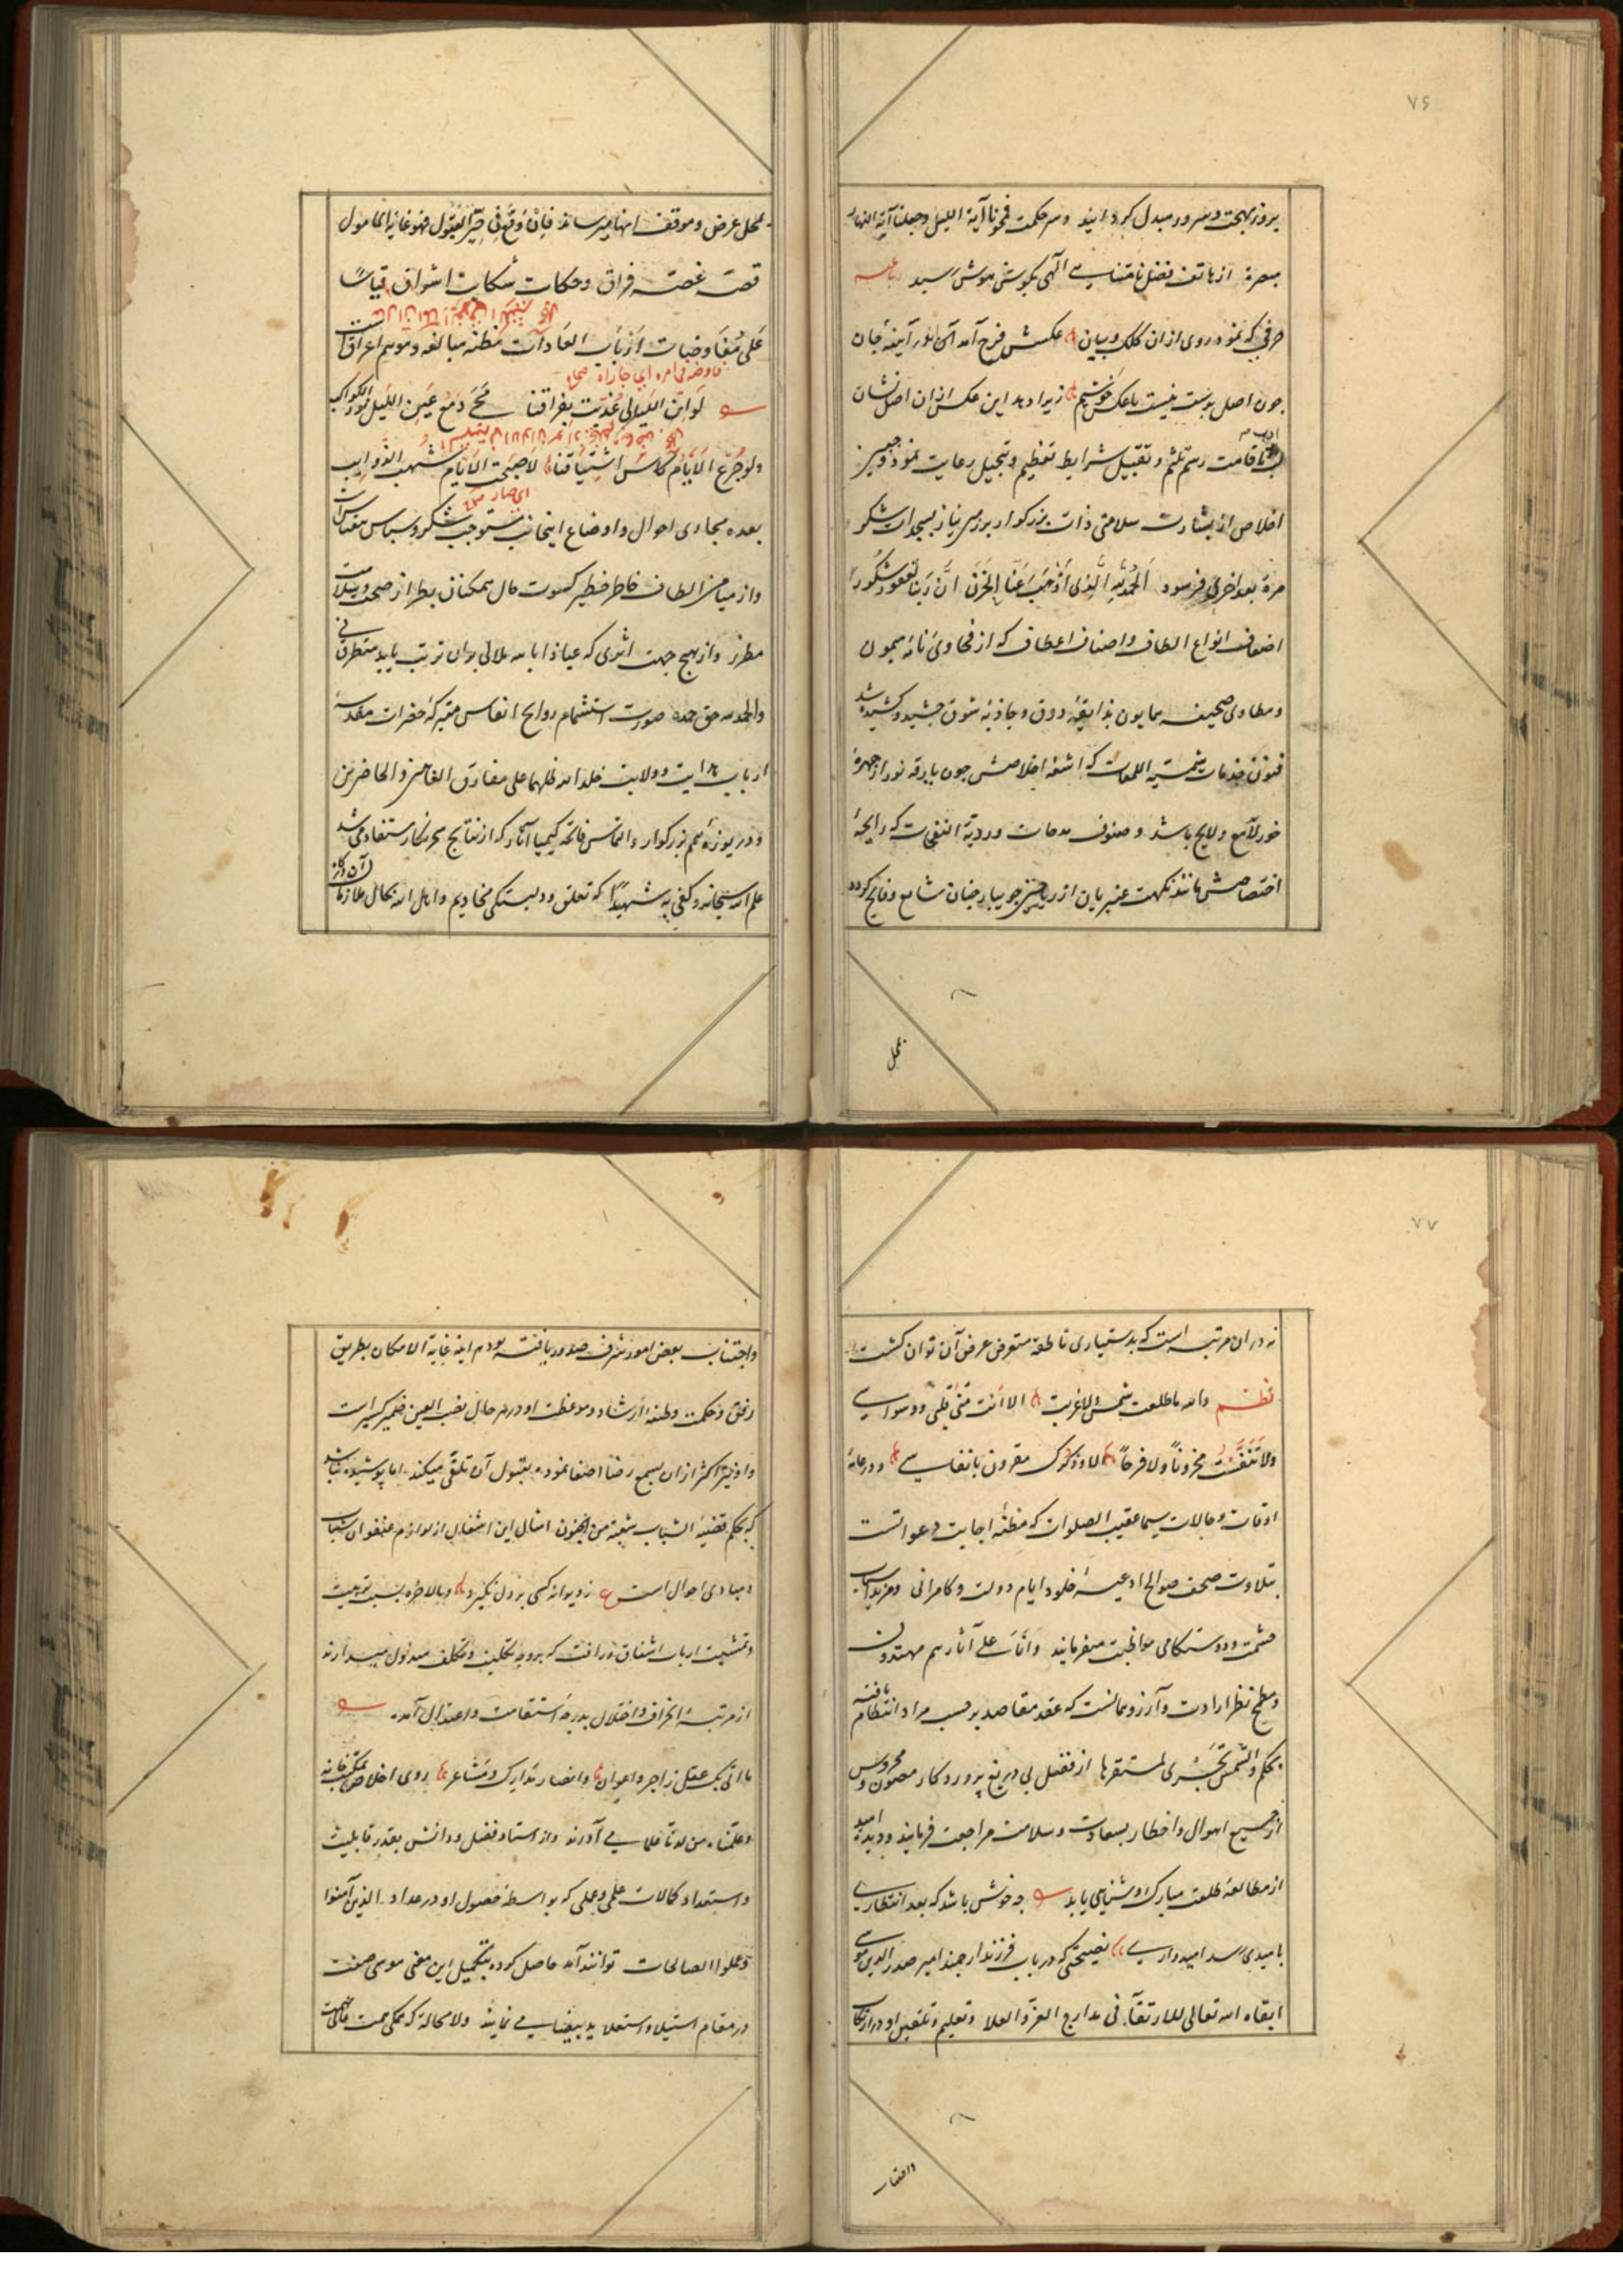 ۷۶
بروز بهجت و سرور مبدل کردانید و سر حکمت فمحونا آیة اللیل وجعلنا آیة النهار
مبصرة از هاتف فضل نامتناهی الهی بکوش هوش رسید رباعیه
حرفی که نمود روی ازان کلک و بیان عکسش فرح آمد در آیینهٔ جان
چون اصل بدست نیست با عکس خوشیم زیرا دهد این عکس ازان اصل نشان
اقامت رسم تلثم و تقبیل شرایط تعظیم و تبجیل رعایت نمود و جبین
اخلاص از بشارت سلامتی ذات بزرکوار بر زمین نیاز بسجدات شکر
مرة بعد اخری فرسود الحمد لله الذی اذهب عنا الحزن ان ربنا لغفور شکور
اضعاف انواع الطاف و اصناف اعطاف که از فحاوی نامهٔ میمون
و مطاوی صحیفه همایون بذایقهٔ ذوق و جاذبهٔ شوق چشیده و کشیده شد
فنون خدمات شمسیه اللمعات که اشعه اخلاصش چون بارقه نور از چهرهٔ
خور لامع و لایح باشد و صنوف مدحات وردیة النفحات که رایحهٔ
اختصاصش مانند نکهت عنبر یان از ریاحین جویبار رضیان شایع و فایح کردد
بمحل
بمحل عرض و موقف انها میرساند فان وقع فی حیز القبول فهو غایة المامول
قصهٔ غصه فراق و حکایت شکایت اشواق قیاسًا
علی مفاوضات ارباب العادات مظنه مبالغه و موهم اغراق است
فاوضه فی امره ای جازاه صح
لو ان اللیالی عذبت بفراقنا محی دمع عین اللیل نور الکواکب
ولو جرع الایام کاس اشتیاقنا لاصبحت الایام شهب الذوایب
ای صار
بعده مجاری احوال و اوضاع اینجانب مستوجب شکر و سپاس بیقیاس است
و از میامن الطاف خاطر خطیر کسوت حال همکنان بطراز صحت و سلامت
مطرز و از هیچ جهت اثری که عیاذا بالله ملالی بران ترتب یابد متطرق نی
والحمد لله حق حمده صورت استشمام روایح انفاس متبرکهٔ حضرات مقدسهٔ
ارباب هدایت و ولایت خلد الله ظلهما علی مفارق الغابرین والحاضرین
و دریوزهٔ همم بزرکوار و التماس فاتحهٔ کیمیا آثار که از نتایج مستفاد می شد
علم الله سبحانه وکفی به شهیدًا که تعلق و دلبستکی مخادیم و اهالی
۷۷
نه دران مرتبه است که بدستیاری ناطقه متعرض عرض آن توان کشت
نظم والله ما طلعت شمس ولا غربت الا انت منی قلبی و وسواسی
ولا تنفست محزوناً ولا فرحاً الا وذکرک مقرون بانفاسی و در عامهٔ
اوقات و حالات سیما عقیب الصلوات که مظنهٔ اجابت دعواتست
بتلاوت صحف صوالح ادعیهٔ خلود ایام دولت و کامرانی و مزید اسباب
حشمت و دوستکامی مواظبت میفرماید وانا علی آثارهم مهتدون
و مطمح نظر ارادت و آرزو همانست که عقد مقاصد بر حسب مراد انتظام یافته
بحکم والشمس تجری لمستقرها از فضل بی دریغ پروردکار مصون و محروس
از جمیع اهوال و اخطار بسعادت و سلامت مراجعت فرمایند و دیدهٔ امید
از مطالعهٔ طلعت مبارک روشنایی یابد چه خوش باشد که بعد انتظاری
بامیدی رسد امیدواری نصیحتی که در باب فرزند ارجمند امیر صدر الدین موسی
ابقاه الله تعالی للارتقاء فی مدارج العز والعلا و تعلیم و تلقین او در ارتکاب
واجتناب
واجتناب بعضی امور شرف صدور یافته بود هر اینه غایة الامکان بطریق
رفق و حکمت وظیفهٔ ارشاد و موعظت او در هر حال نصب العین ضمیر کسیر است
و او نیز اکثر ازان بسمع رضا اصغا نموده بقبول آن تلقی میکند اما پوشیده نباشد
که بحکم قضیهٔ الشباب شعبة من الجنون امثال این اشتغال از لوازم عنفوان شباب
و مبادی احوال است ع ز دیوانه کسی بر دل نکیرد و بالاخره بسبب تربیت
و تمشیت ارباب اشفاق و رافت که بر وجه تکلیف و تکلف مبذول میدارند
از مرتبهٔ انحراف و اختلال بدرجهٔ استقامت و اعتدال آمده
با اتابک عقل زاجر و اعوان و انصار مدارک و مشاعر روی اخلاص بمکتبخانهٔ
وعلمناه من لدنا علما می آورند و از استاد فضل و دانش بقدر قابلیت
و استعداد کمالات علمی و عملی که بواسطهٔ حصول او در عداد الذین آمنوا
وعملوا الصالحات توانند آمد حاصل کرده بتکمیل این معنی موسی صفت
در مقام استیلا و استعلا ید بیضا می نمایند ولا محاله که همکی همت عالی نهمت